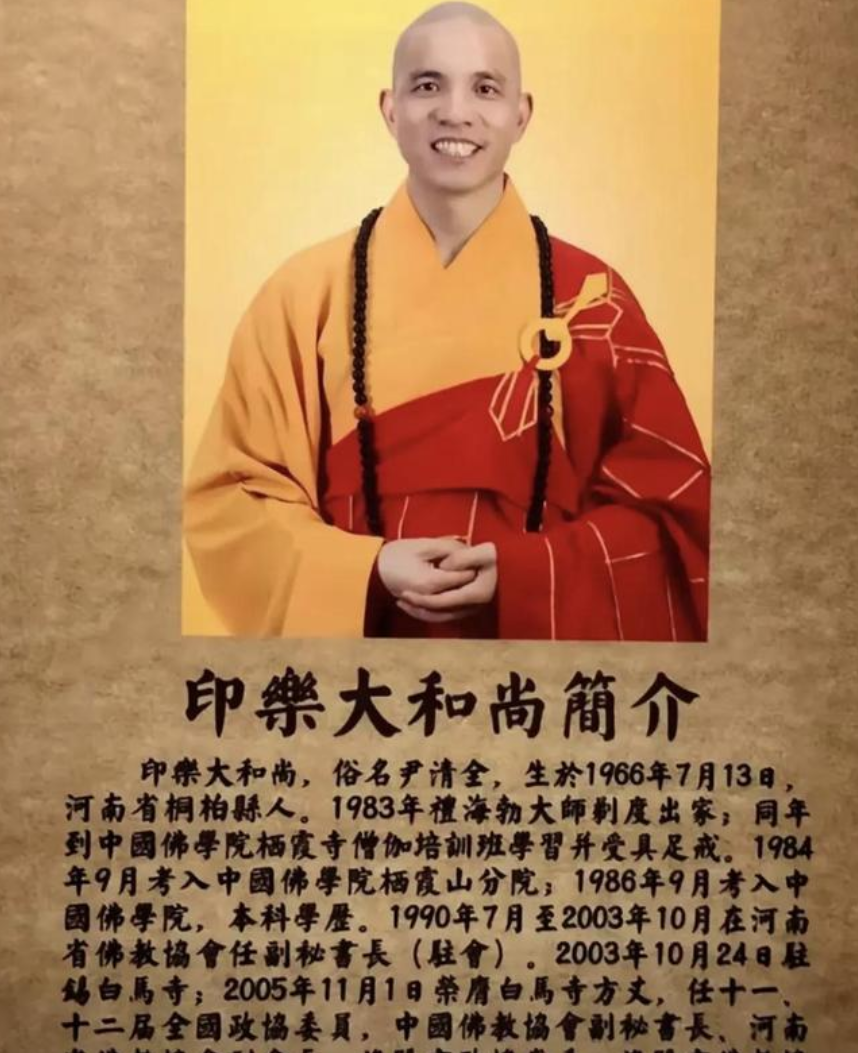 印樂大和尚簡介
印樂大和尚，俗名尹清全，生於1966年7月13日，
河南省桐柏縣人。1983年禮海勃大師剃度出家；同年
到中國佛學院栖霞寺僧伽培訓班學習并受具足戒。1984
年9月考入中國佛學院栖霞山分院；1986年9月考入中
國佛學院，本科學歷。1990年7月至2003年10月在河南
省佛教協會任副秘書長（駐會）。2003年10月24日駐
錫白馬寺；2005年11月1日榮膺白馬寺方丈，任十一、
十二届全國政協委員，中國佛教協會副秘書長、河南